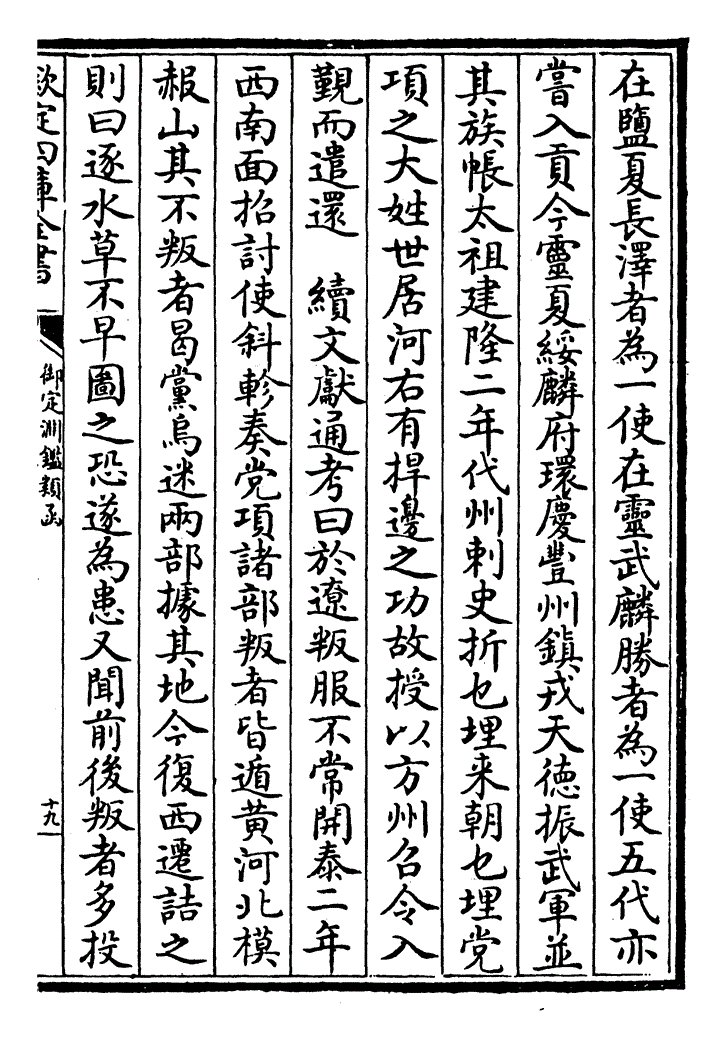 在鹽夏長澤者為一使在靈武麟勝者為一使五代亦
嘗入貢今靈夏綏麟府環慶豐州鎮戎天德振武軍並
其族帳太祖建隆二年代州刺史折乜埋来朝乜埋党
項之大姓世居河右有捍邊之功故授以方州召令入
覲而遣還　續文獻通考曰於遼叛服不常開泰二年
西南面招討使斜軫奏党項諸部叛者皆遁黄河北模
赧山其不叛者曷黨烏迷兩部據其地今復西遷詰之
則曰逐水草不早圖之恐遂為患又聞前後叛者多投
欽定四庫全書
御定淵鑑類函
十九